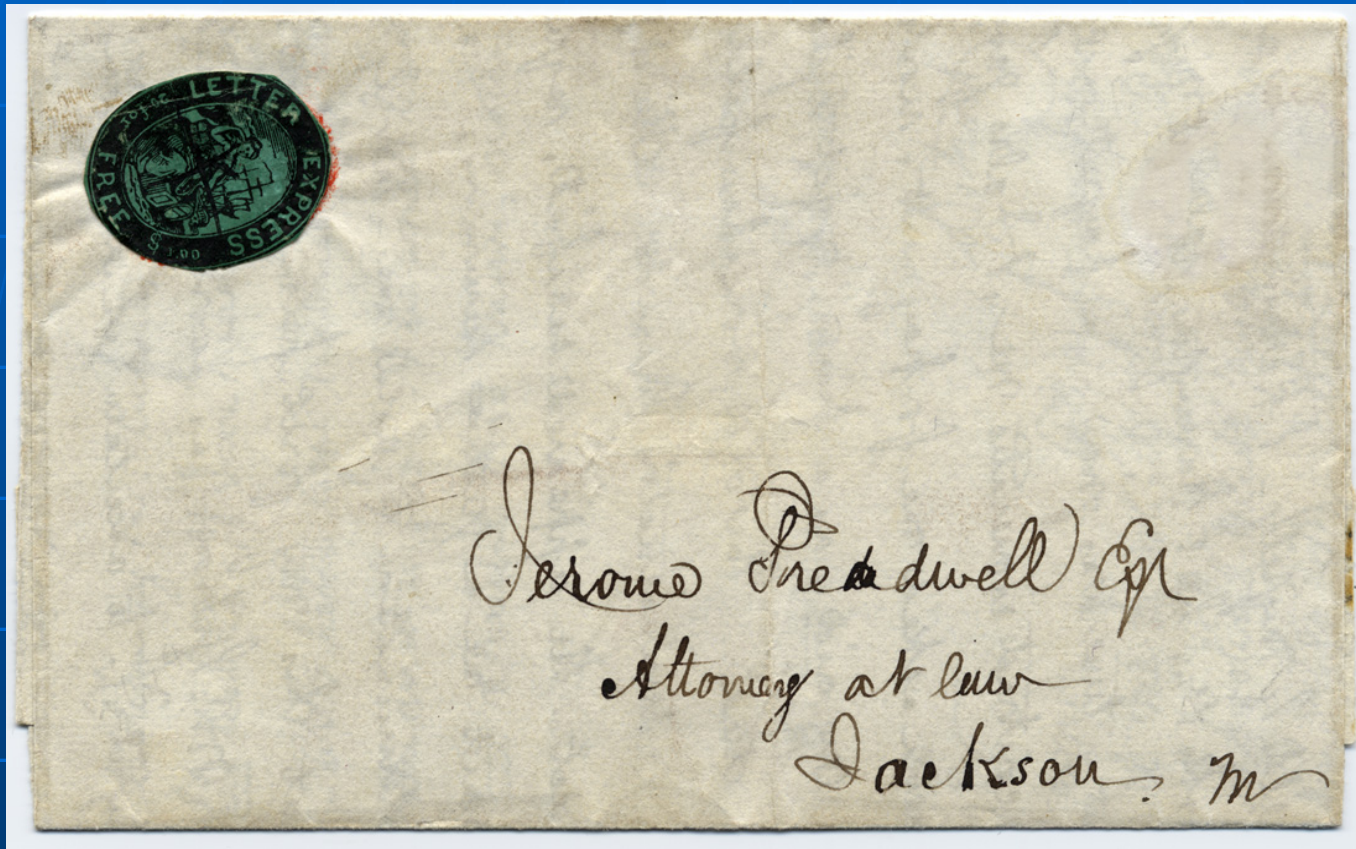 FREE LETTER EXPRESS
20 for $1.00
Jerome Treadwell Esqr
Attorney at law
Jackson. M